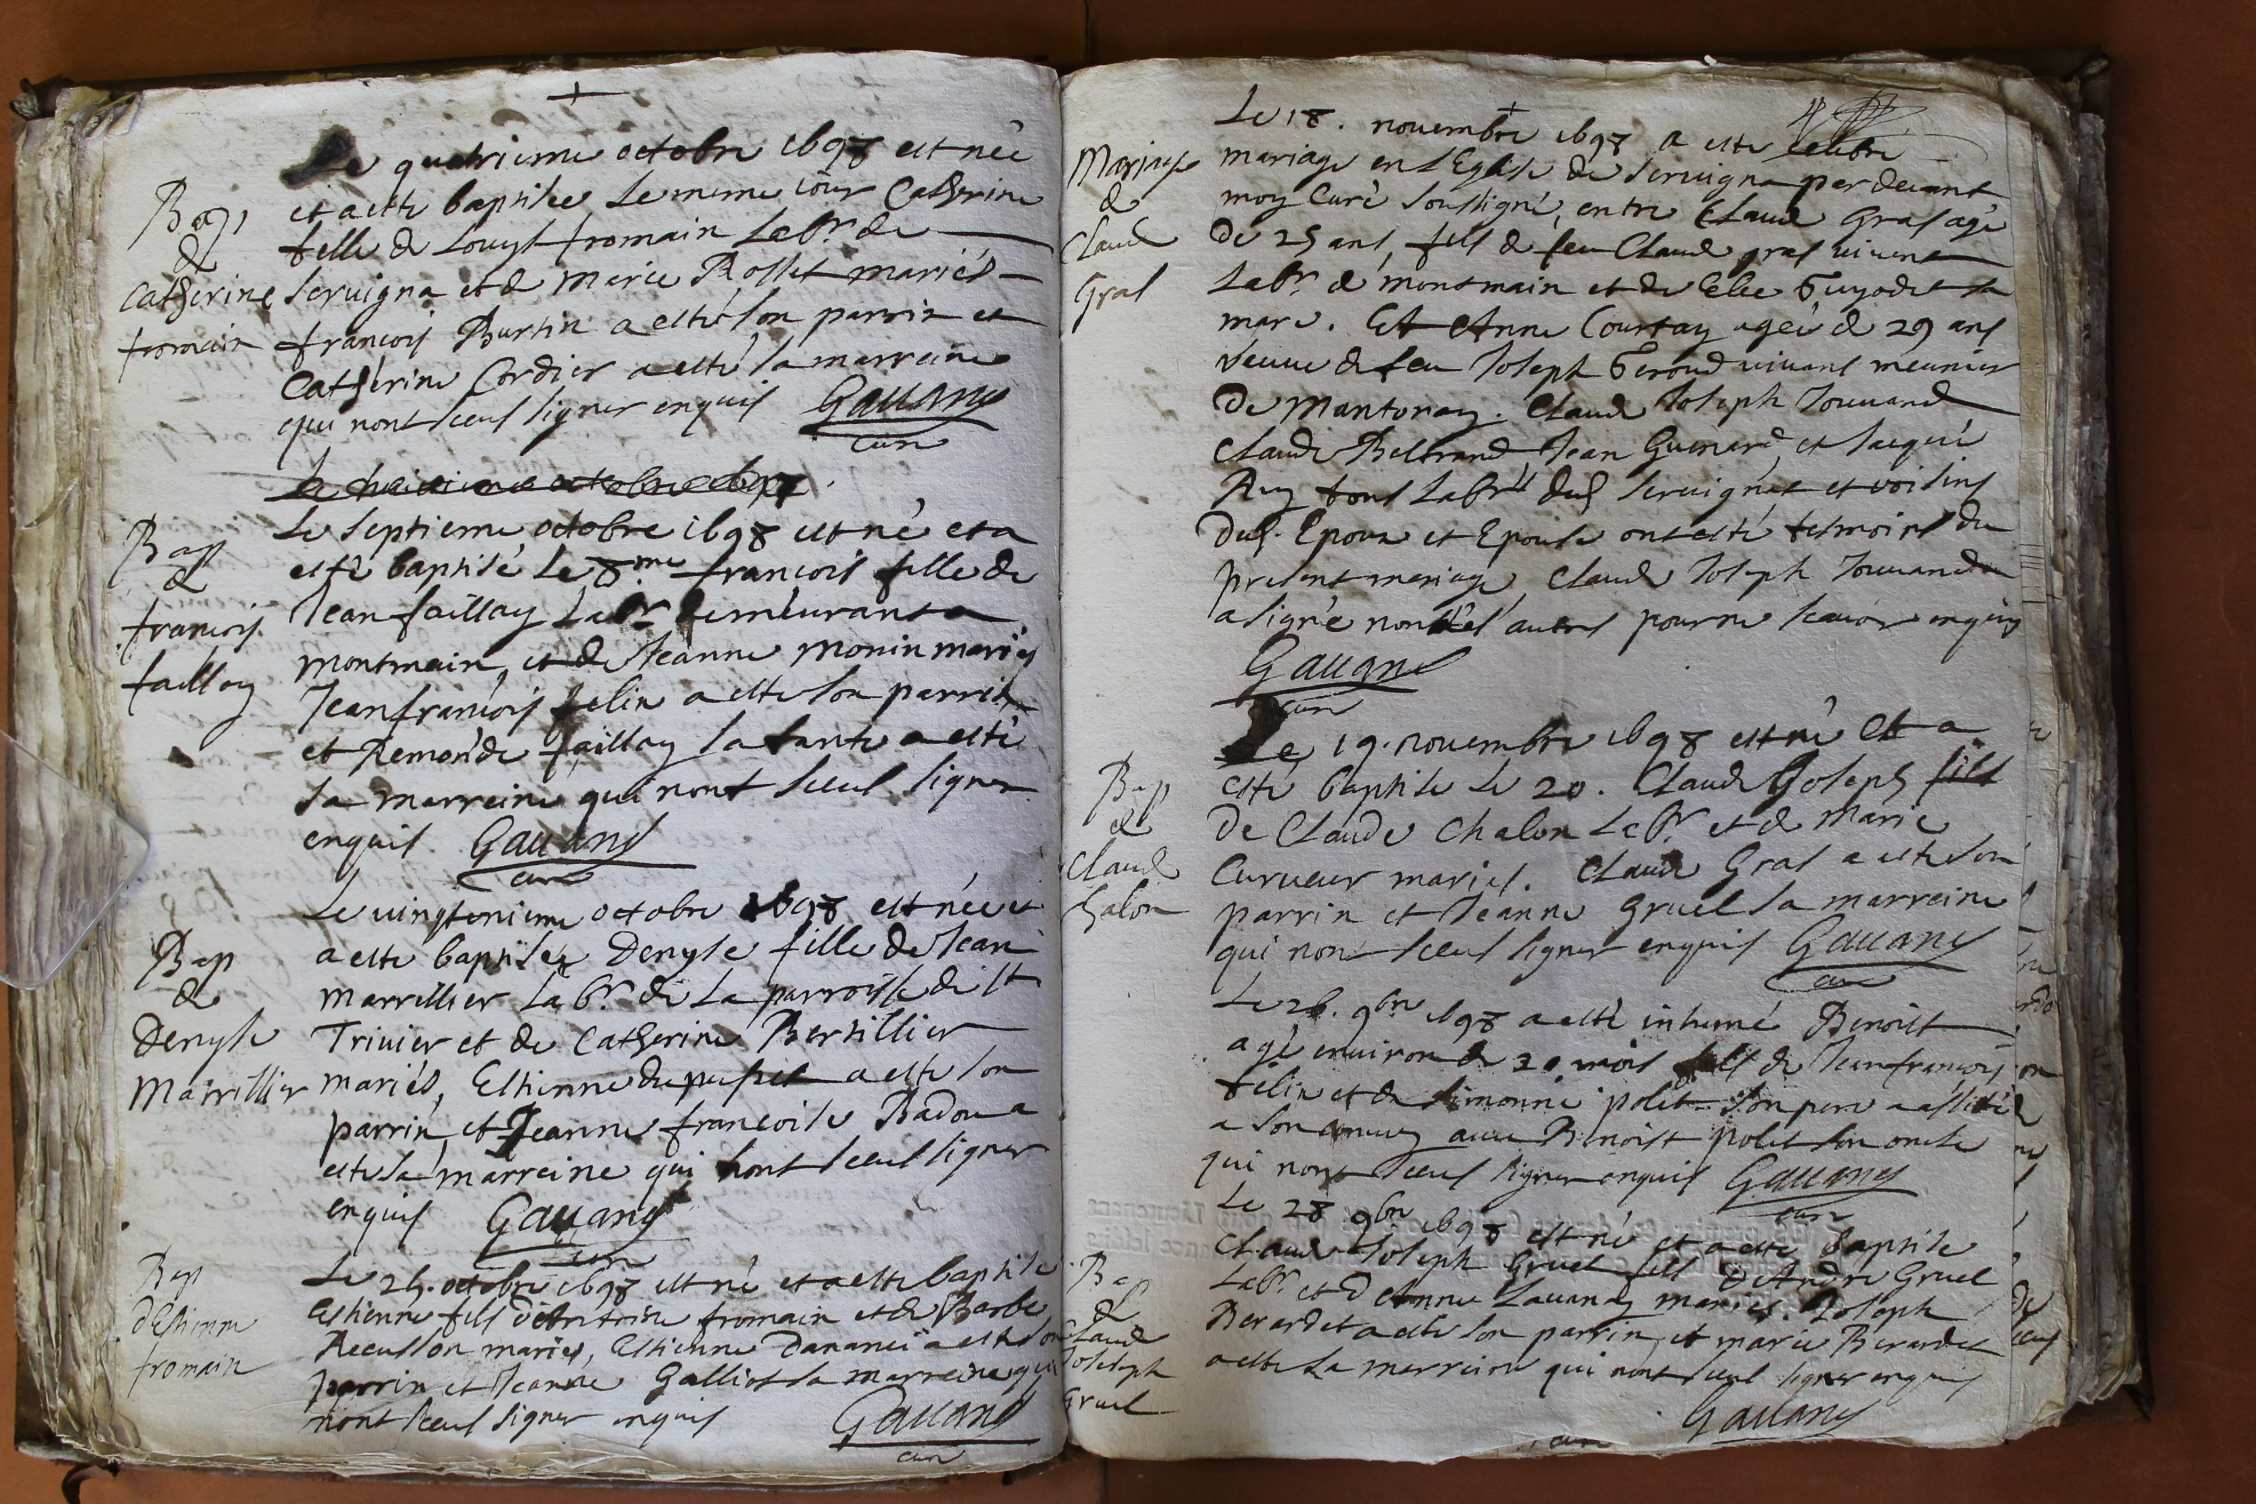 Le quatrieme octobre 1698 est née
et a esté baptisée le meme iour Catherine
fille de Louys fromain Labr. de
Seruigna et de Marie Rosset mariés
francois Burtin a esté son parrin et
Catherine Cordier a esté sa marreine
qui nont sceus signer enquis Gauand
curé
Bap
de
Catherine
fromain
Le septieme octobre 1698 est né et a
esté baptisé le 8.me francois fille de
Jean faillay Labr. demeurant a
montmain, et de Jeanne monin mariés
Jean francois felin a esté son parrin
et Remonde faillay sa tante a esté
sa marreine qui nont sceus signer
enquis Gauand
curé
Bap
de
francois
faillay
Le uingtunieme octobre 1698 est née et
a esté baptisée Denyse fille de Jean
marrillier Labr. de La parroisse de St
Triuier et de Catherine Bersillier
mariés, Esthienne dupuset a esté son
parrin et Jeanne francoise Badou a
esté sa marreine qui nont sceus signer
enquis Gauand
curé
Bap
de
Denyse
Marrillier
Le 25. octobre 1698 est né et a esté baptisé
Esthienne fils fromain et de Barbe
mariés, Esthienne a esté son
parrin et Jeanne Galliot sa marreine qui
nont sceus signer enquis Gauand
curé
Bap
dEsthienne
fromain
Le 18. nouembre 1698 a esté celebré
mariage en lEglise de Seruigna par deuant
moy Curé soussigné, entre Claude Gras agé
de 25 ans, fils de feu Claude gras uiuant
Labr. de montmain et de Guyodet sa
mare. Et Anne Courtay agée de 29 ans
veuue de feu Joseph Geroud uiuant meunier
De Mantenay. Claude Joseph Jouuand
Claude Beltrand, Jean Guenard et Jaque
Ruy tous Labrs dud Seruignat et voisins
Dud. Epoux et Epouse ont esté tesmoins du
present mariage, Claude Joseph Jouuand
a signé non les autres pour ne scauoir enquis
Gauand
curé
Mariage
de
Claude
Gras
Le 19. nouembre 1698 est né Et a
esté baptisé le 20. Claude Joseph fils
de Claude Chalon Labr. et de Marie
Curueur mariés. Claude Gras a esté son
parrin et Jeanne Gruel sa marreine
qui nont sceus signer enquis Gauand
curé
Bap
de
Claude
Chalon
Le 26. 9bre 1698 a esté inhumé Benoist
agé enuiron de 20 mois fils de Jean francois
felin et de Simonne polet son pere a assisté
a son conuoy auec Benoist polet son oncle
qui nont sceus signer enquis Gauand
curé
Le 28 9bre 1698 est né et a esté baptisé
Claude Joseph Gruel fils DAndre Gruel
Labr. et dAnne Lauanay mariés. Joseph
Berardet a esté son parrin, et marie Berardet
a esté la marreine qui nont sceus signer enquis
Gauand
curé
Bap
de
Claude
Joseph
Gruel